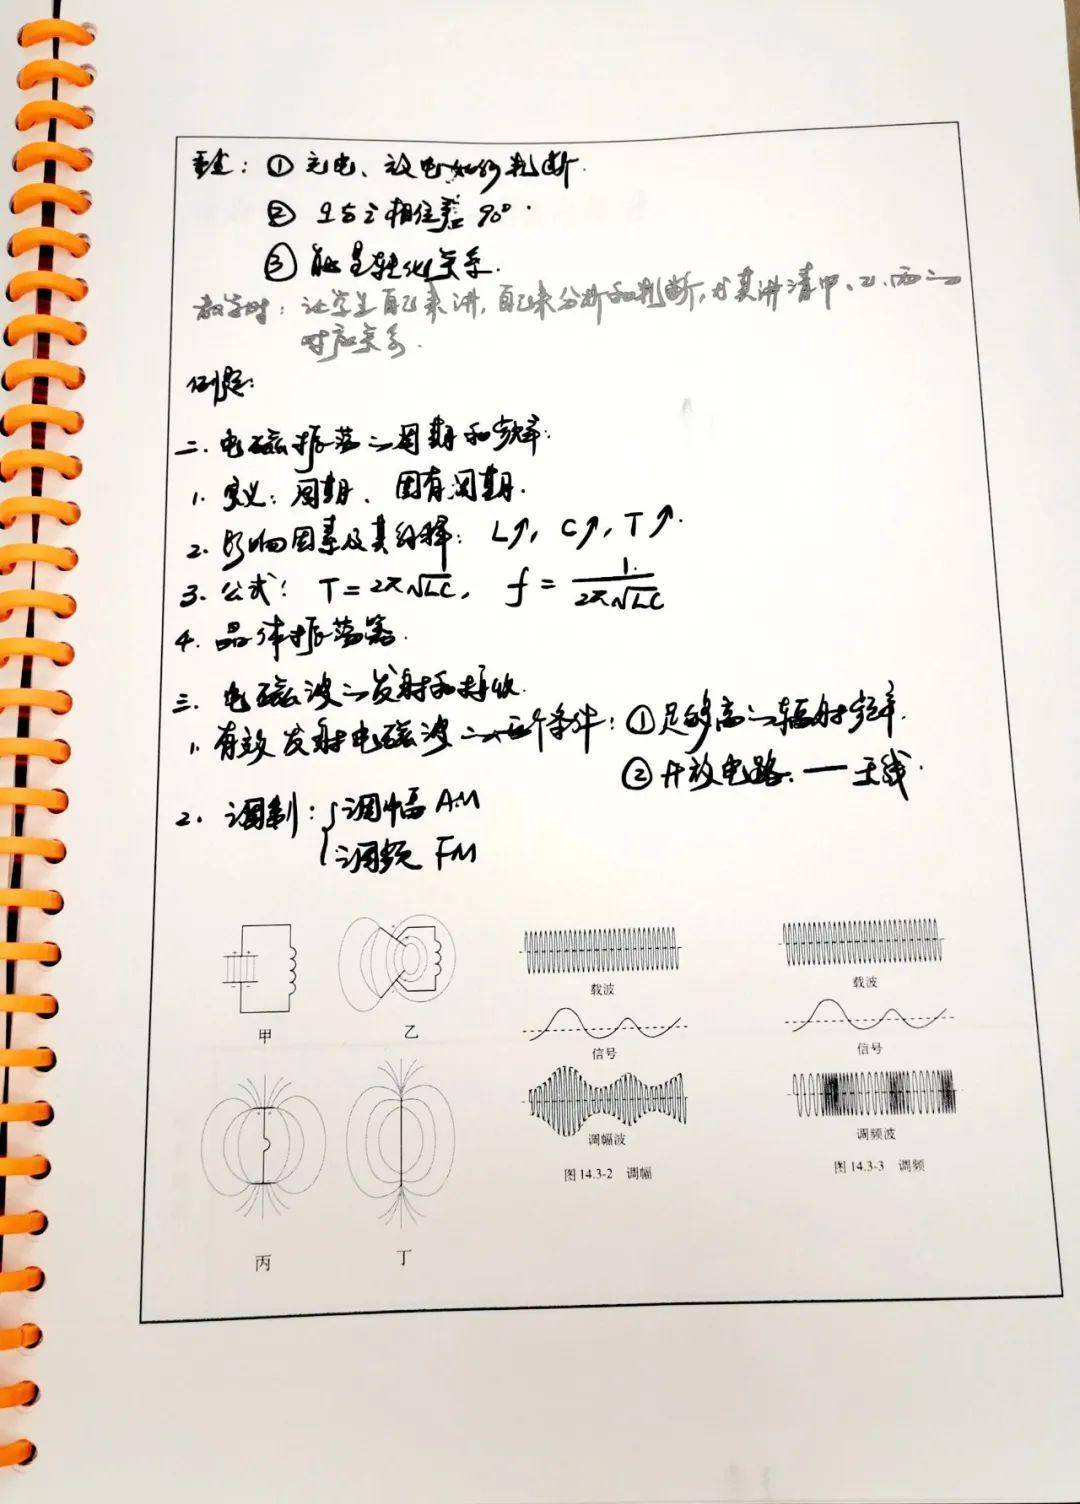 重点：① 充电、放电如何判断.
② q与i相位差 90°.
③ 能量转化关系.
教学时：让学生自己来讲，自己来分析和判断，尤其讲清甲、乙、丙之
对应关系.
例题：
二. 电磁振荡之周期和频率：
1. 定义：周期、固有周期.
2. 影响因素及其解释：L↑，C↑，T↑.
3. 公式：T=2π√LC，f=1/2π√LC
4. 晶体振荡器.
三. 电磁波之发射和接收.
1. 有效发射电磁波之两个条件：①足够高之辐射频率.
②开放电路. — 天线.
2. 调制：{调幅 AM
调频 FM
载波 载波
甲 乙 信号 信号
调幅波 调频波
图 14.3-2 调幅 图 14.3-3 调频
丙 丁